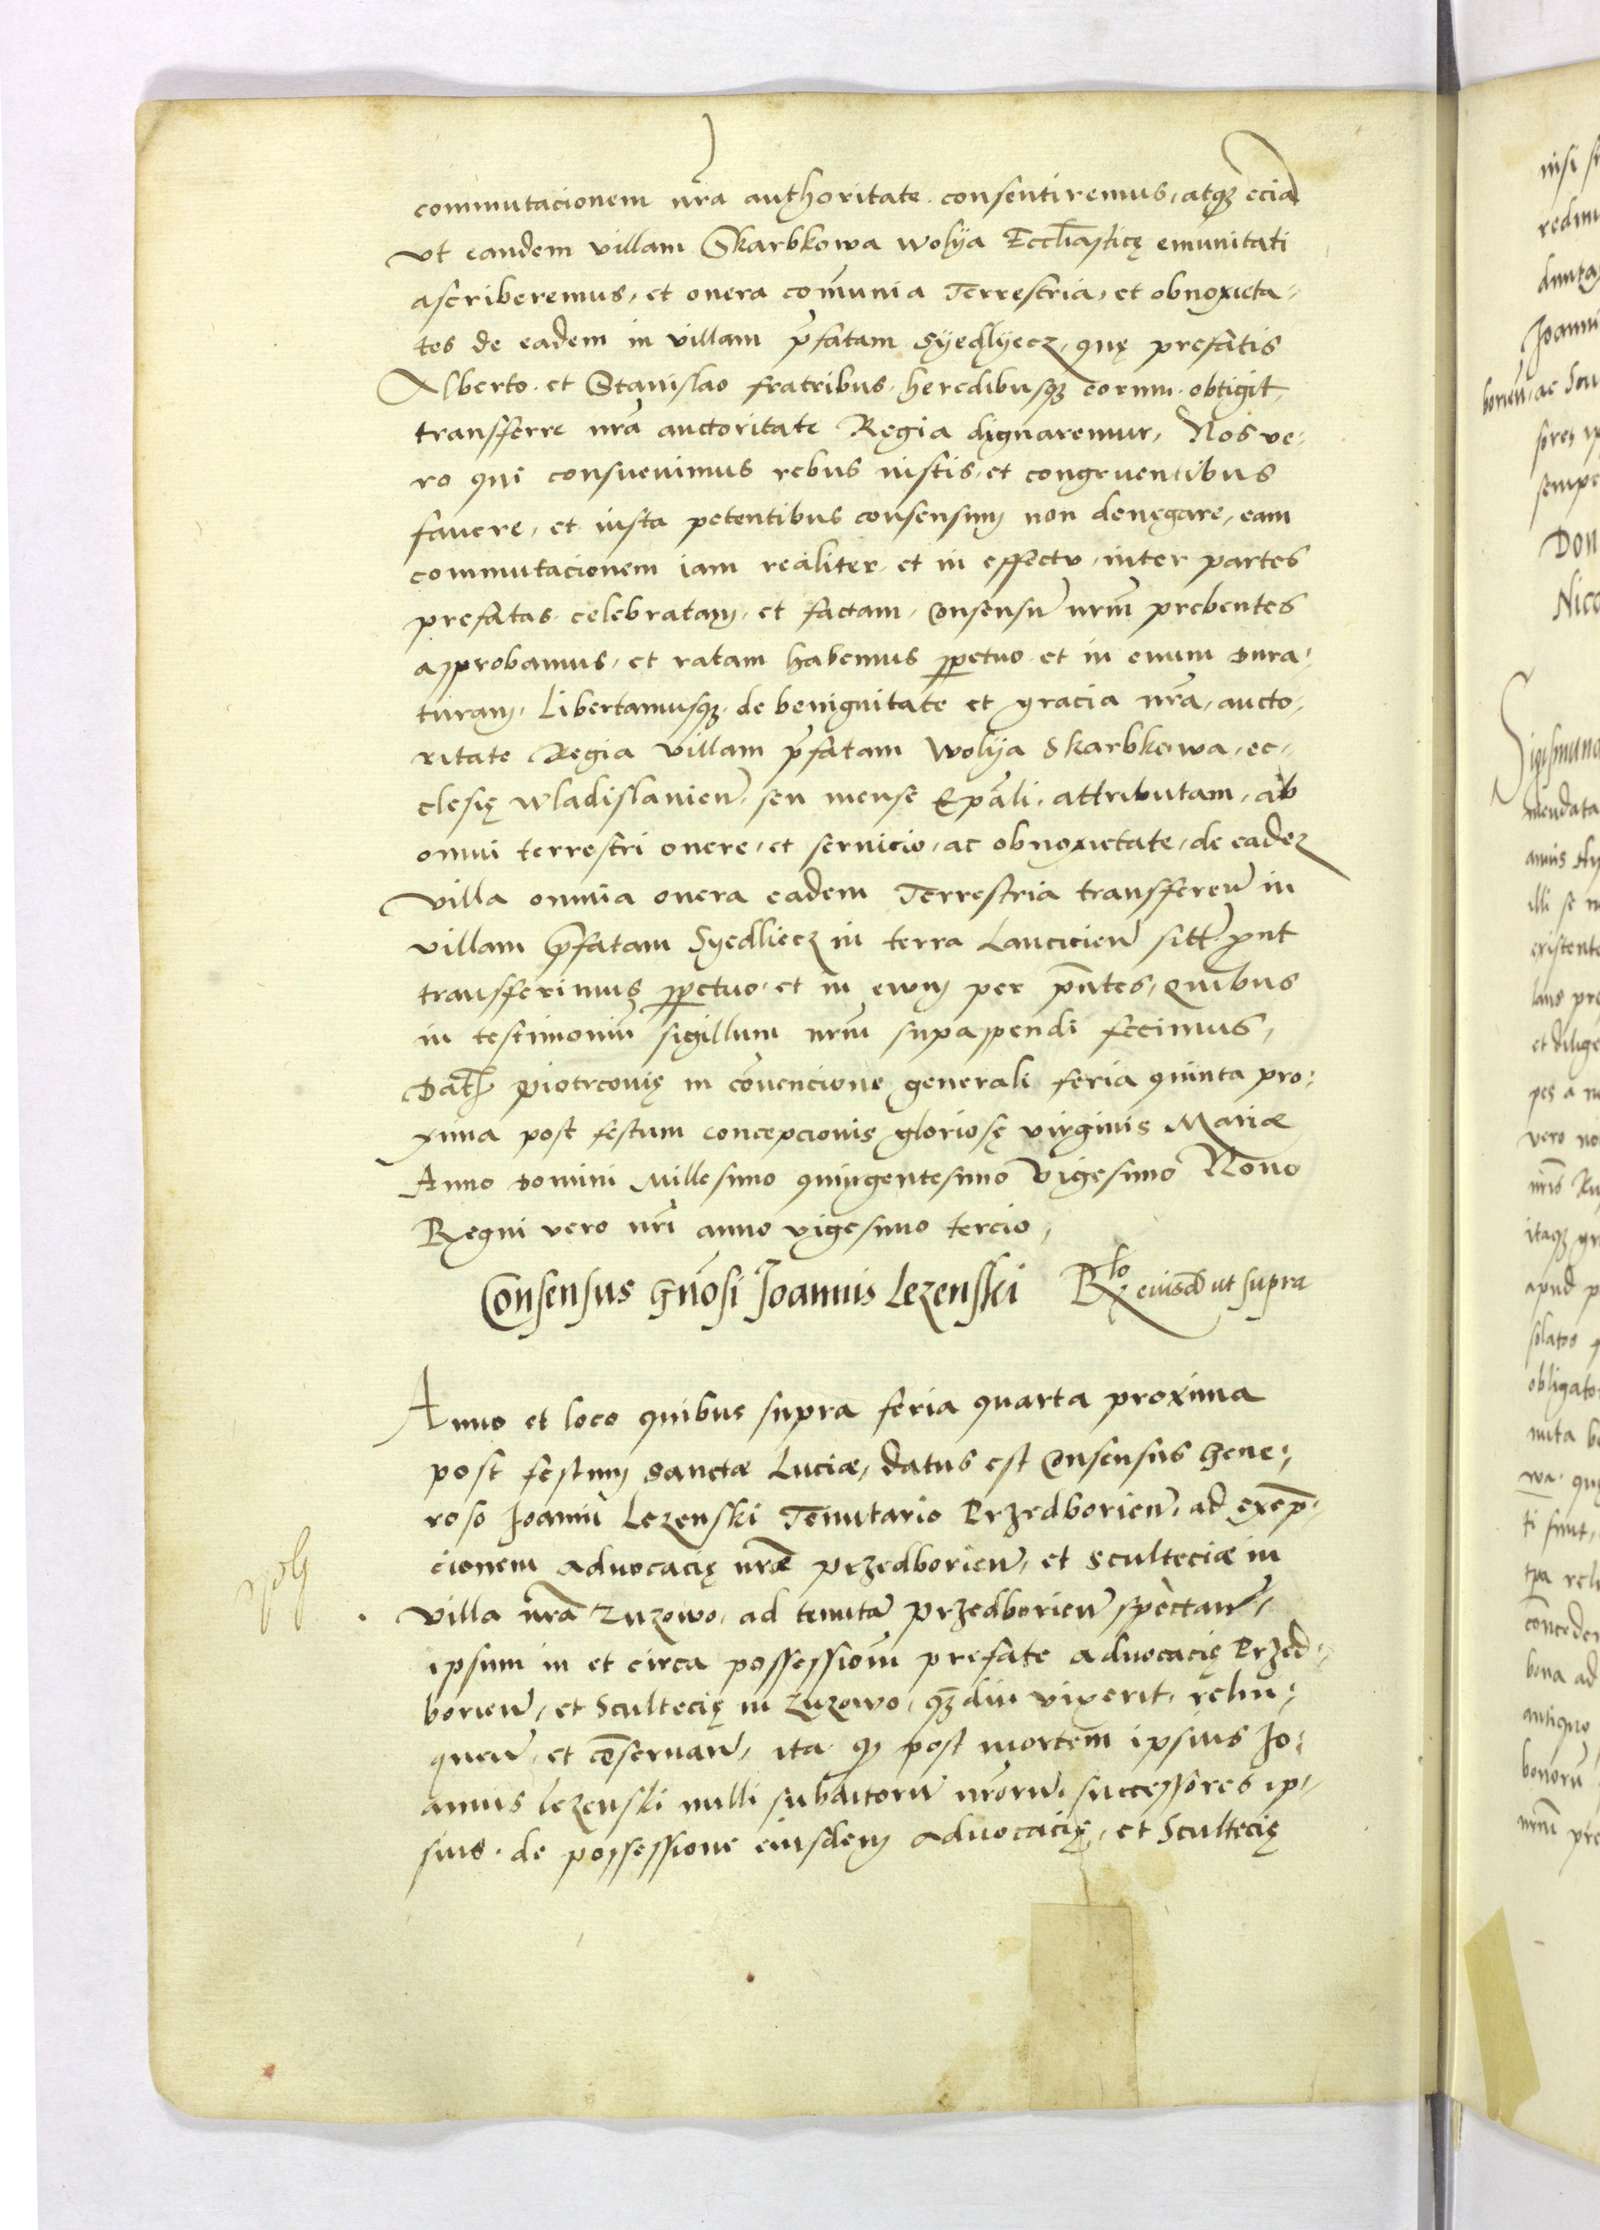 commutacionem nrã authoritate consentiremus, atq3 eciã
vt eandem villam Skarbkowa wolya Eccliasticę emunitati
ascriberemus, et onera comunia Terrestria, et obnoxieta-
tes de eadem in villam p̃fatam Syedlyecz, quę prefatis
Alberto et Stanislao fratribus heredibusq3 eorum obtigit,
transfferre nrã auctoritate Regia dignaremur, Nos ve-
ro qui consuevimus rebus iustis, et congruentibus
favere, et iusta petentibus consensum non denegare, eam
commutacionem iam realiter et in effectu inter partes
prefatas celebratam, et factam, consensũ nrm̃ prebentes
approbamus, et ratam habemus ꝑpetuo et in euum dura-
turam, Libertamusq3 de benignitate et gracia nrã, aucto-
ritate Regia villam p̃fatam Wolya Skarbkowa, ec-
clesię wladislavieñ, seu mense Epãli, attributam, ab
omni terrestri onere, et servicio, ac obnoxietate, de eadez
villa omnia onera eadem Terrestria transffereñ in
villam p̃fatam Syedliecz in terra Lancicieñ sitt. prout
transfferimus ꝑpetuo et in ewm per pñtes, Quibus
in testimoniũ sigillum nrm̃ supappendi fecimus,
Dat Piotrcovię in cõnvencione generali feria quinta pro-
xima post festum concepcionis gloriosę virginis Mariæ
Anno Domini Millesimo quingentesimo Vigesimo Nono
Regni vero nrĩ anno vigesimo tercio,
Consensus gñosi Joannis Lezenski Rlo eiusd ut supra
Anno et loco quibus supra feria quarta proxima
post festum sanctæ Luciæ, datus est consensus gene-
roso Joanni Lezenski Tenutario Przedborieñ, ad exemp-
cionem advocacię nræ przedborieñ, et sculteciæ in
villa nrã Zuzowo, ad tenutã przedborieñ spectañ,
ipsum in et circa possessionm̃ prefate advocacię Przed-
borieñ, et Scultecię in Zuzowo, q3diu vixerit, relin-
queñ, et cõservañ, ita q3 post mortem ipsius Jo-
annis Lezenski nulli subditorũ nrorũ, successores ip-
sius de possessione eiusdem advocacię, et Scultecię